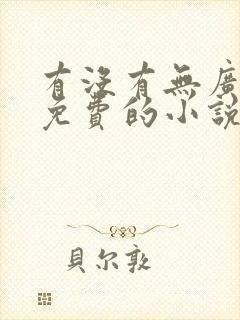 有沒有無廣
免費的小說
貝尔敦